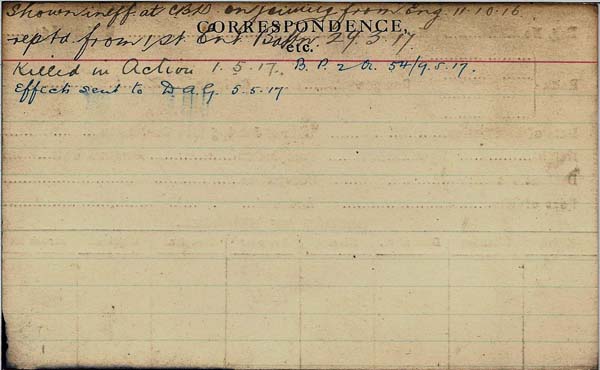 Shown ineff at CBD on joining from Eng 11.10.16
CORRESPONDENCE,
etc.
reptd from 1st Ent Battn 29.3.17.
Killed in Action 1.5.17. B.P. 2 O. 54/9.5.17.
Effects sent to DAG. 5.5.17